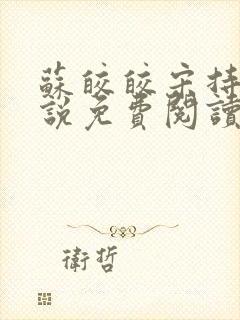 蘇皎皎宋持
說免費閱讀
衛哲